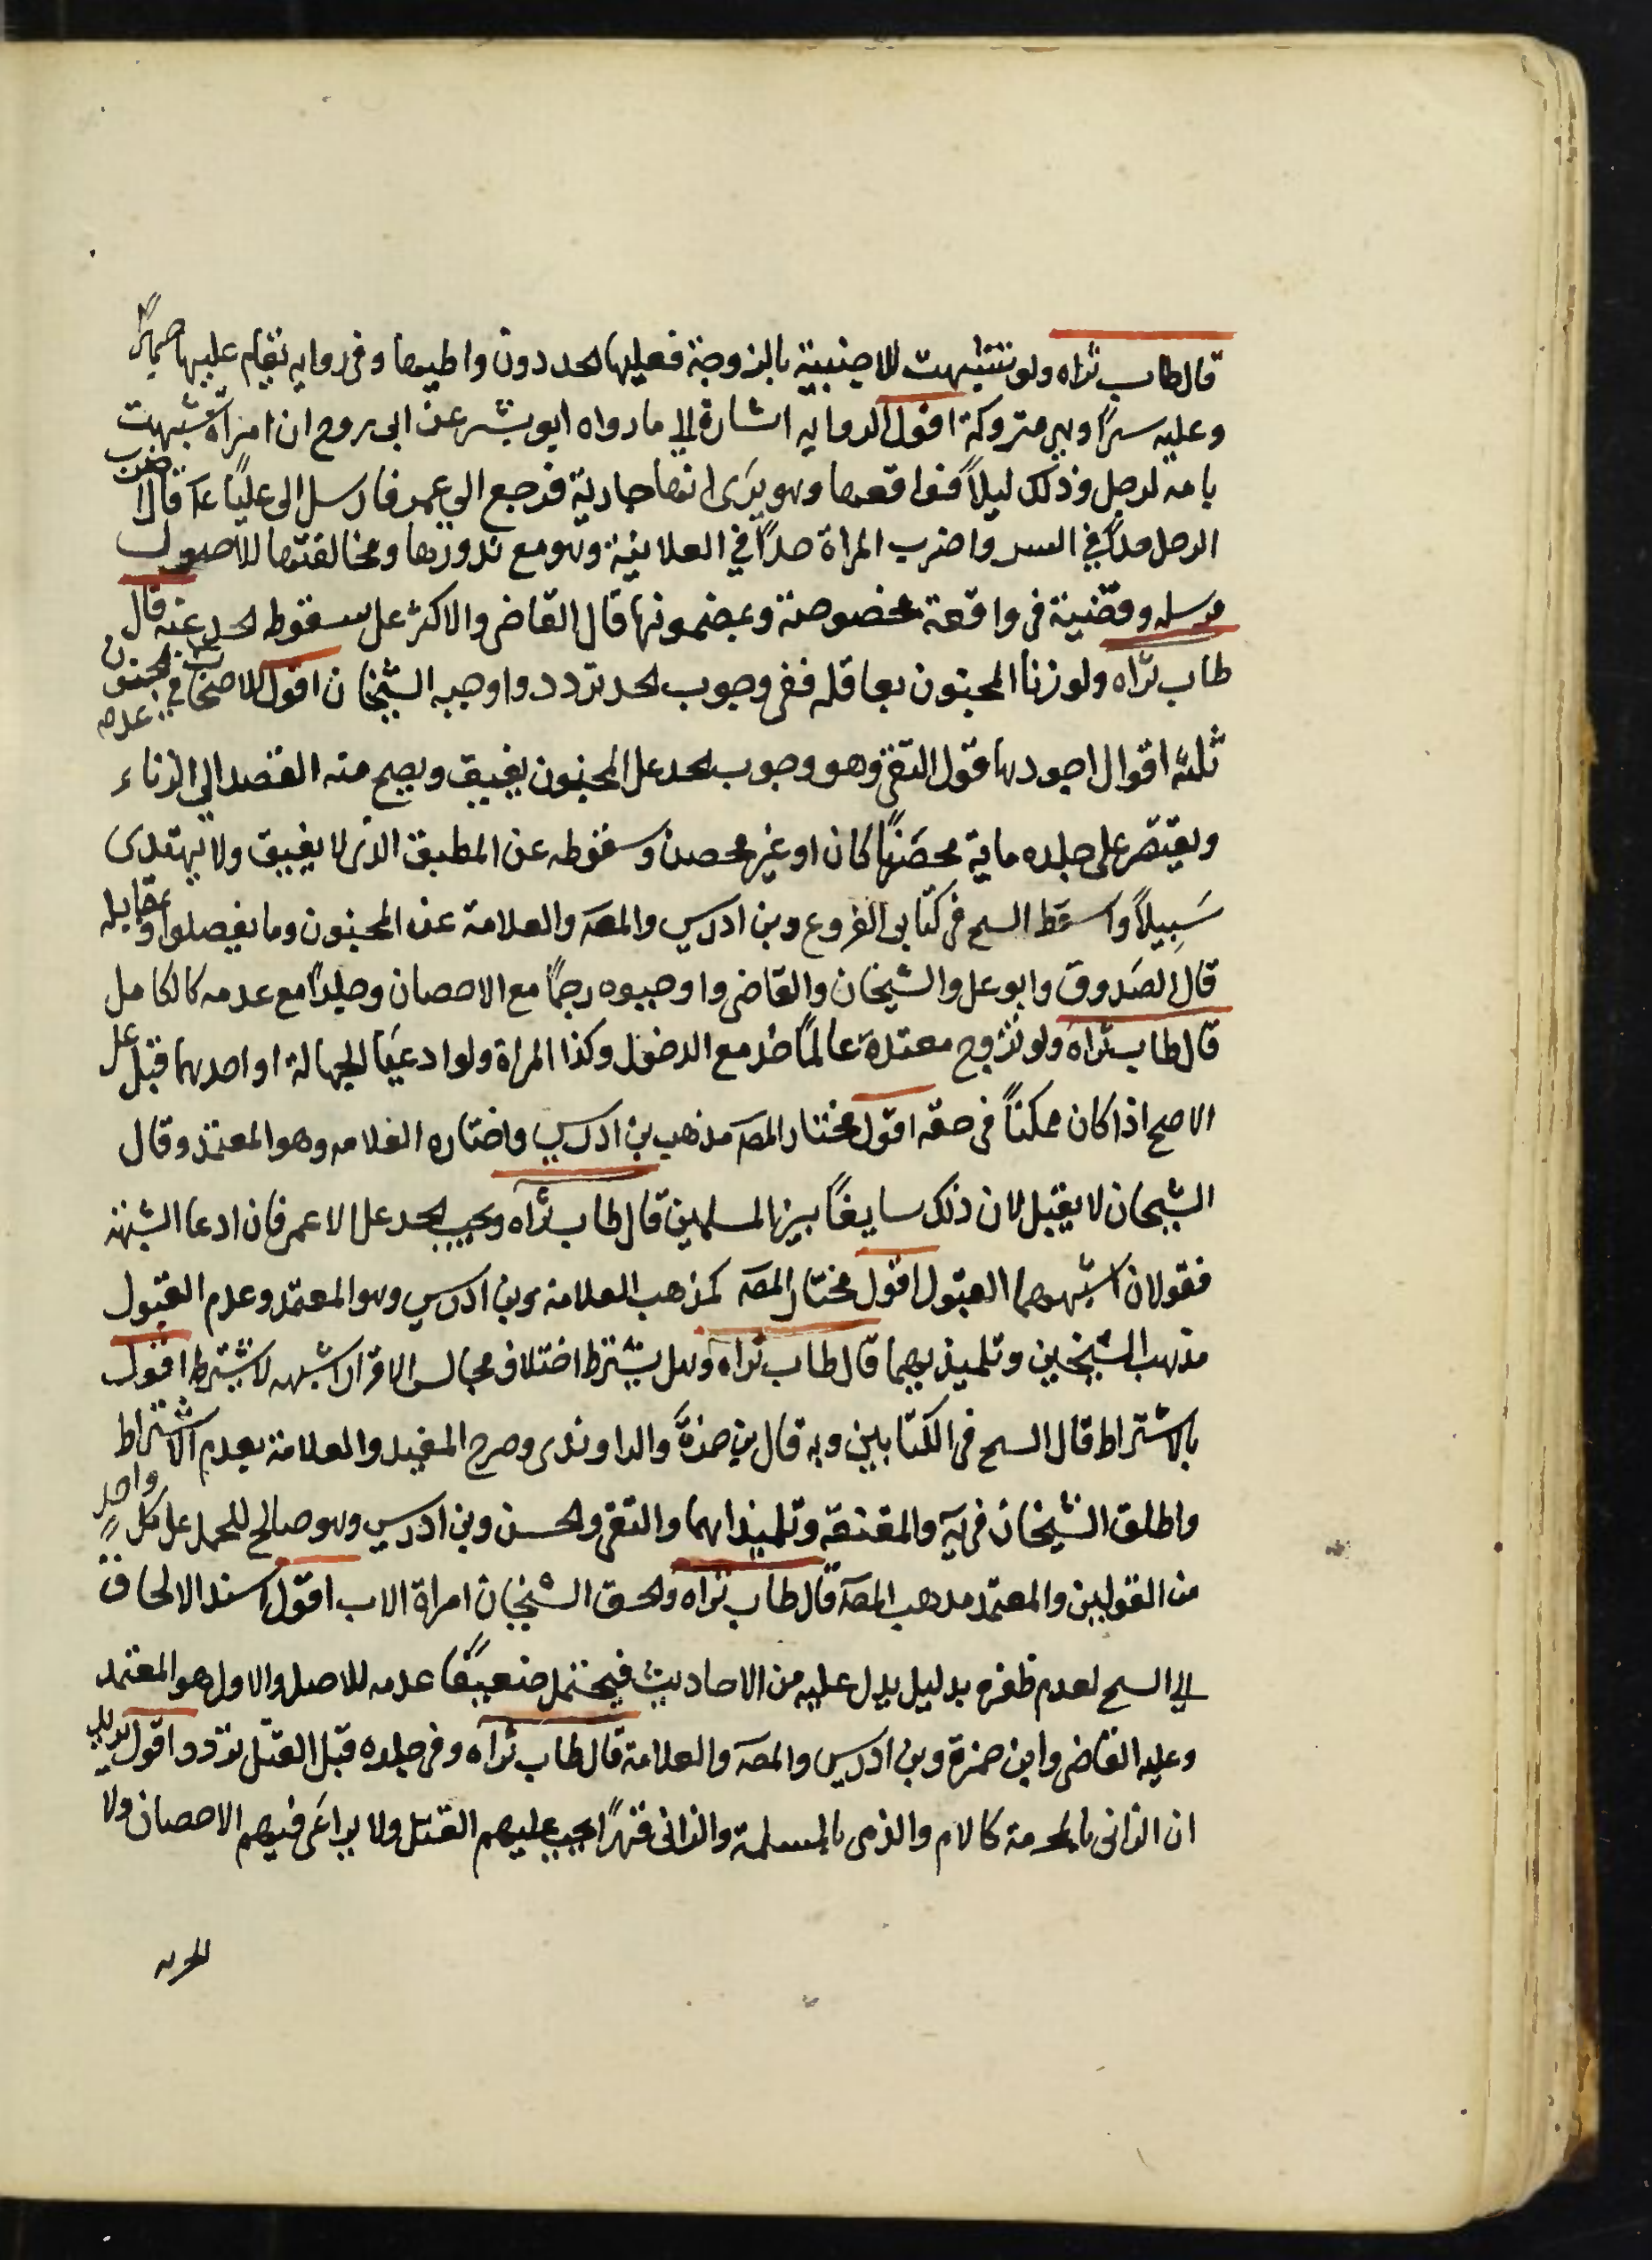 قال طاب ثراه ولو تشبهت الاجنبية بالزوجة فعليها الحد دون واطيها وفى روايه يقام عليها جهراً
وعليه سراً وهى متروكة اقول الروايه اشارة الى ما رواه ابو بشر عن ابى روح ان امراة تشبهت
بامه لرجل وذلك ليلاً فواقعها وهو يرى انها جارية فرجع الى عمر فارسل الى علياً ع قال اضرب
الرجل حداً فى السر واضرب المراة حداً فى العلانية وهو مع ندورها ومخالفتها للاصول
مرسله وقضية فى واقعة مخصوصة وبمضمونها قال القاضى والاكثر على سقوط الحد عنه قال
طاب ثراه ولو زنا المجنون بعاقله ففى وجوب الحد تردد واوجبه الشيخان اقول للاصحاب فى المجنون عدمه
ثلثه اقوال اجودها قول التقى وهو وجوب الحد على المجنون يفيق ويصح منه القصد الى الزناء
ويقتصر على جلده ماية محصنا كان او غير محصن وسقوطه عن المطبق الذى لا يفيق ولا يهتدى
سَبِيلاً واسقط الشيخ فى كتابى الفروع وبن ادريس والمصـ والعلامة عن المجنون وما يفصلوا وبمقابله
قال الصدوق وابو على والشيخان والقاضى واوجبوه رجماً مع الاحصان وجلداً مع عدمه كالكامل
قال طاب ثراه ولو تزوج معتدة عالماً حد مع الدخول وكذا المراة ولو ادعيَا الجهالة او احدهما قبل على
الاصح اذا كان ممكناً فى حقه اقول مختار المصـ مذهب بن ادريس واختاره العلامه وهو المعتمد وقال
الشيخان لا يقبل لان ذلك سايغاً بين المسلمين قال طاب ثراه ويجب الحد على الاعمى فان ادعا الشبهه
فقولان اشبههما القبول اقول مختار المصـ كمذهب العلامة وبن ادريس وهو المعتمد وعدم القبول
مذهب الشيخين وتلميذيهما قال طاب ثراه وهل يشترط اختلاف مجالس الاقرار اشبهه لا يشترط اقول
بالاشتراط قال الشيخ فى الكتابين وبه قال بن حمزة والراوندى وصرح المفيد والعلامة بعدم الاشتراط
واطلق الشيخان فى يه والمقنعة وتلميذاهما والتقى والحسن وبن ادريس وهو صالح للحمل على كل واحد
من القولين والمعتمد مذهب المصـ قال طاب ثراه والحق الشيخان امراة الاب اقول اسند الالحاق
الى الشيخ لعدم ظفره بدليل يدل عليه من الاحاديث فيحتمل ضعيفا عدمه للاصل والاول هو المعتمد
وعليه القاضى وابن حمزة وبن ادريس والمصـ والعلامة قال طاب ثراه وفى جلده قبل القتل تردد اقول
ان الزانى بالمحرمة كالام والذمى بالمسلمة والزانى قهراً يجب عليهم القتل ولا يراعَى فيهم الاحصان ولا
الحريه